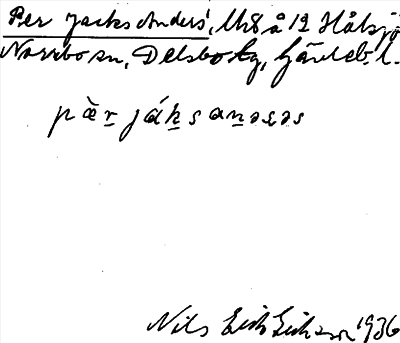 Per Jacks Anders', Uh8 å 12 Håksjö
Norrbo sn, Delsbo tg, Gävleb. l.
pàr ják s anəsəs
Nils Erik Eriksson 1936